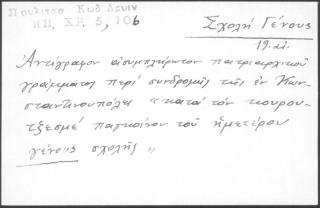 Πουλίτσα Κώδ Σειν
ΗΠ, ΧΡ. 5, 106
Σχολή Γένους
19. αι.
Ἀντίγραφον ἀσυμπλήρωτον πατριαρχικοῦ
γράμματος περὶ συνδρομῆς τῆς ἐν Κων-
σταντινουπόλει "κατὰ τὸν κουρου-
τζεσμὲ παγκοίνου τοῦ ἡμετέρου
γένους σχολῆς"